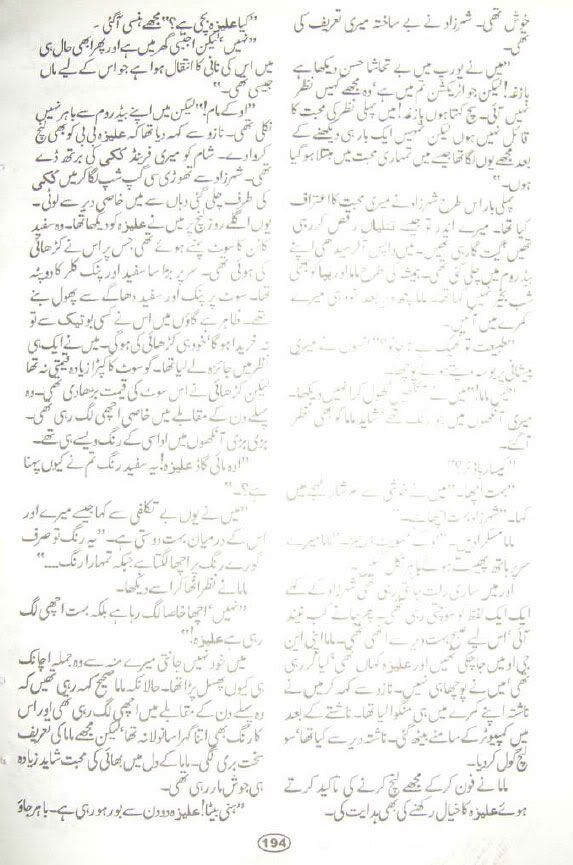 خوش تھی۔ شہرزاد نے بے ساختہ میری تعریف کی
تھی۔
"میں نے یورپ میں بے تحاشا حسن دیکھا ہے
بازغہ! لیکن جو اٹریکشن تم میں ہے وہ مجھے کہیں نظر
نہیں آئی۔ سچ کہتا ہوں بازغہ! میں پہلی نظر کی محبت کا
قائل نہیں ہوں لیکن تمہیں ایک بار ہی دیکھنے کے
بعد مجھے یوں لگا تھا جیسے میں تمہاری محبت میں مبتلا ہو گیا
ہوں۔"
پہلی بار اس طرح شہرزاد نے میری محبت کا اعتراف
کیا تھا۔ میرے اندر تو جیسے تتلیاں رقص کر رہی
تھیں گیت گا رہی تھیں۔ میں واپس آ کر سیدھی اپنے
بیڈ روم میں چلی گئی تھی۔ ہمیشہ کی طرح ماما اور پپا کو بھی
شب بخیر نہیں کہا تھا۔ ماما کچھ دیر بعد خود ہی میرے
کمرے میں آئیں۔
"طبیعت تو ٹھیک ہے نا جانو؟" انہوں نے میری
پیشانی پر بوسہ دیتے ہوئے پوچھا۔
"لیس ماما!" میں نے آنکھیں کھول کر انہیں دیکھا۔
میری آنکھوں میں جو رنگ تھے شاید ماما کو بھی نظر
آ گئے۔
"کیسا رہا ڈنر؟"
"بہت اچھا۔" میں نے خوشی سے سرشار لہجے میں
کہا۔ "شہرزاد بہت اچھا ہے۔"
ماما مسکرا دیں۔ سویٹ ڈریمز۔" ماما میرے
سر پر ہاتھ پھیرتے ہوئے باہر نکل گئیں۔
اور میں ساری رات جاگتی رہی تھی شہرزاد کے کہے
ایک ایک لفظ کو سوچتی رہی تھی۔ پھر جانے کب نیند
آئی' اس لیے صبح بہت دیر سے اٹھی تھی۔ ماما اپنی این
جی او میں جا چکی تھیں اور علیزہ کہاں تھی' کیا کر رہی
تھی' میں نے پوچھا ہی نہیں۔ نازو سے کہہ کر میں نے
ناشتہ اپنے کمرے میں ہی منگوا لیا تھا۔ ناشتے کے بعد
میں کمپیوٹر کے سامنے بیٹھ گئی۔ ناشتہ دیر سے کیا تھا' سو
لنچ گول کر دیا۔
ماما نے فون کر کے مجھے لنچ کرنے کی تاکید کرتے
ہوئے علیزہ کا خیال رکھنے کی بھی ہدایت کی۔
"کیا علیزہ بچی ہے؟" مجھے ہنسی آ گئی۔
"نہیں' لیکن اجنبی گھر میں ہے اور پھر ابھی حال ہی
میں اس کی نانی کا انتقال ہوا ہے جو اس کے لیے ماں
جیسی تھی۔"
"اوکے مام!" لیکن میں اپنے بیڈ روم سے باہر نہیں
نکلی تھی۔ نازو سے کہہ دیا تھا کہ علیزہ بی بی کو بھی لنچ
کروا دے۔ شام کو میری فرینڈ ککی کی برتھ ڈے
تھی۔ شہرزاد سے تھوڑی سی گپ شپ لگا کر میں ککی
کی طرف چلی گئی وہاں سے میں خاصی دیر سے لوٹی۔
یوں اگلے روز لنچ پر میں نے علیزہ کو دیکھا تھا۔ وہ سفید
کاٹن کا سوٹ پہنے ہوئے تھی جس پر اس نے کڑھائی
کی ہوئی تھی۔ سر پر بڑا سا سفید اور پنک کلر کا دوپٹہ
تھا۔ سوٹ پر پنک اور سفید دھاگے سے پھول بنے
تھے۔ ظاہر ہے گاؤں میں اس نے کسی بوتیک سے تو
نہ خریدا ہو گا' خود ہی کڑھائی کی ہو گی۔ میں نے ایک ہی
نظر میں جائزہ لے لیا تھا۔ گو سوٹ کا کپڑا زیادہ قیمتی نہ تھا
لیکن کڑھائی نے اس سوٹ کی قیمت بڑھا دی تھی۔ وہ
پہلے دن کے مقابلے میں خاصی اچھی لگ رہی تھی۔
بڑی بڑی آنکھوں میں اداسی کے رنگ ویسے ہی تھے۔
"اوہ مائی گاڈ علیزہ! یہ سفید رنگ تم نے کیوں پہنا
ہے؟۔"
"میں نے یوں بے تکلفی سے کہا جیسے میرے اور
اس کے درمیان بہت دوستی ہے۔" یہ رنگ تو صرف
گورے رنگ پر اچھا لگتا ہے جبکہ تمہارا رنگ۔۔۔۔"
ماما نے نظر اٹھا کر اسے دیکھا۔
"نہیں' اچھا خاصا لگ رہا ہے بلکہ بہت اچھی لگ
رہی ہے علیزہ!"
میں خود نہیں جانتی میرے منہ سے وہ جملہ اچانک
ہی کیوں پھسل پڑا تھا۔ حالانکہ ماما صحیح کہہ رہی تھیں کہ
وہ پہلے دن کے مقابلے میں اچھی لگ رہی تھی اور اس
کا رنگ بھی اتنا گہرا سانولا نہ تھا' لیکن مجھے ماما کی تعریف
سخت بری لگی۔ ماما کے دل میں بھائی کی محبت شاید زیادہ
ہی جوش مار رہی تھی۔
"ہنی بیٹا! علیزہ دو دن سے بور ہو رہی ہے۔ باہر جاؤ
194